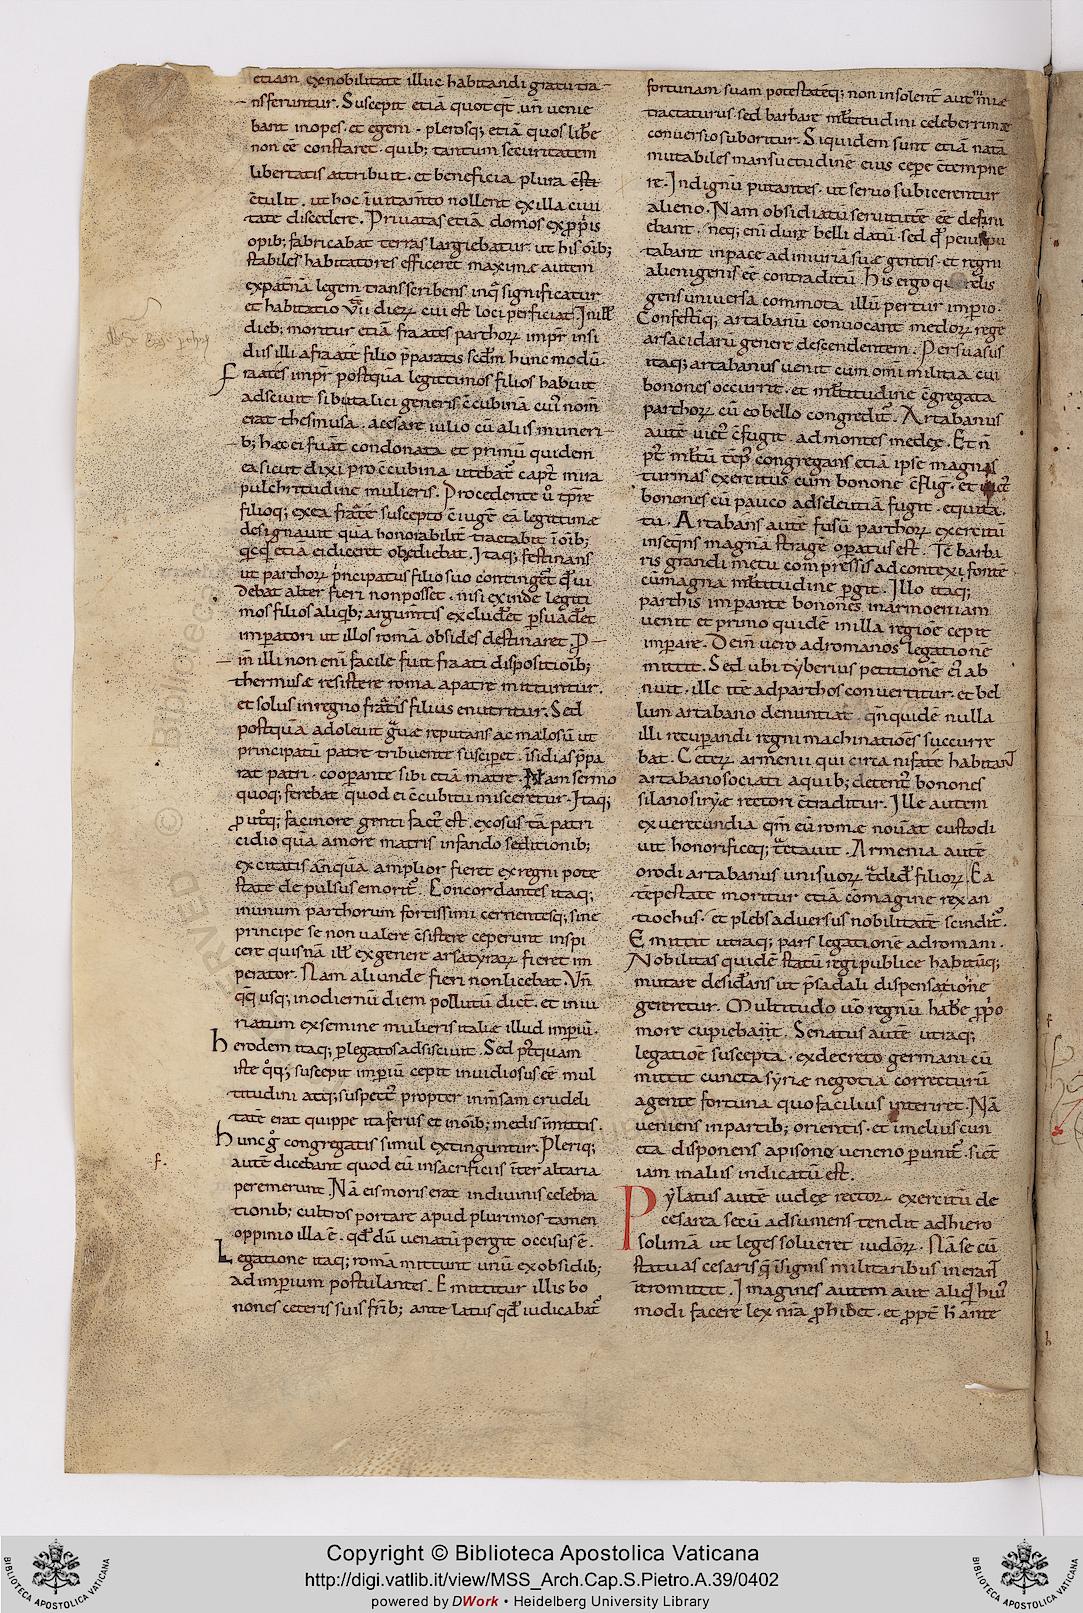 etiam exnobilitate illuc habitandi gratia tra
nsferuntur. Suscepit etiā quotqt. un̄ venie
bant inopes. et egeni. plerosq; etiā quos libe
non eē constaret. quib; tantum securitatem
libertatis attribuit. et beneficia plura
c̄tulit. ut hoc nollent ex illa civi
tate discedere. Privatas etiā domos ex
opib; fabricabat terras largiebatur. ut his
stabiles habitatores efficeret maxime autem
legem transscribens. significatur
et habitatio dierꝝ cui est loci perficiat.
dieb; moritur etiā fraates parthorꝝ impr̄ insi
diis illi a fraate filio p̄paratis hunc modū.
Fraates impr̄ postquā legittimos filios habuit
adscivit sibi italici generis c̄cubinā cui nom̄
erat thesmusa. a cesare iulio cū aliis muneri
b; hec ei fuāt condonata et primū quidem
ea sicut dixi pro c̄cubina utebat̄ capt; mira
pulchritudine mulieris. Procedente ū tp̄re
filioq; ex ea fraate suscepto c̄iugē eā legittimā
designavit qua honorabilit̄ tractabit
etiā ei diceret obediebat. Itaq; festinans
ut parthorꝝ principatus filio suo continget
debat alter fieri non posset. nisi exinde legiti
mos filios aliqb; argum̄tis excluderet
imperatori ut illos romā obsides destinaret.
illi non eni facile fuit fraati dispositioīb;
thermusae resistere roma apatre mittuntur.
et solus inregno fraatis filius enutritur. Sed
postquā adolevit reputans ac malosū ut
principatū patre tribuente susciperet. īsidias p̄pa
rat patri. cooperante sibi etiā matre. Nam sermo
quoq; ferebat quod ei c̄cubitu misceretur. Itaq;
facinore genti fact; est. exosus tā patri
cidio quā amore matris infando seditionib;
excitatis anquā amplior fieret ex regni pote
state depulsus emorit̄. Concordantes itaq;
inunum parthorum fortissimi cernentesq; sine
principe se non valere c̄sistere ceperunt inspi
cere quisnā ex genere arsatyrarꝝ fieret im
perator. Nam aliunde fieri non licebat. Un̄
usq; inodiernū diem pollutū dicit. et iniu
riatum exsemine mulieris italiae illud imperiū.
herodem itaq; p legatos adsisciunt. Sed postquam
iste suscepit imperiū cepit invidiosus eē mul
titudini atq; suspect; propter inm̄sam crudeli
tatē erat quippe ita ferus et inoīb; medis
hunc congregatis simul extinguntur. Pleriq;
autē dicebant quod eū insacrificiis īter altaria
peremerunt. Nā eis moris erat in divinis celebra
tionib; cultros portare apud plurimos tamen
oppinio illa ē. qd dū venatū pergit occisus ē.
Legatione itaq; romā mittunt unū ex obsidib;
ad imperium postulantes. Emittitur illis bo
nones ceteris suis frib; ante latus qd iudicabat̄
fortunam suam potestateq; non insolent̄ aut
tractaturus. sed barbare multitudini celeberrimae
conversio suboritur. Siquidem sunt etiā natā
mutabiles mansuetudinē eius cepere c̄tempne
re. Indignū putantes. ut servo subicerentur
alieno. Nam obsidiatū servitutē eē defini
ebant. neq; enī dure belli datū. sed
tabant inpace ad iniuriā sue gentis. et regni
alienigenis eē contraditū. His ergo querelis
gens universa commota illū pertur imperio.
Confestīq; artabanū convocant medorꝝ regē
arsacidarū genere descendentem. Persuasus
itaq; artabanus venit cum omī militia cui
bonones occurrit. et multitudine c̄gregata
parthorꝝ cū eo bello congredit̄. Artabanus
autē vict; c̄fugit. ad montes medee. Et n̄
pt̄ multū tēpꝰ congregans etiā ipse magnas
turmas exercitus cum bonone c̄flig. et vict;
bonones cū pauco ad seleutiā fugit. equita
tu. Artabans autē fusū parthorꝝ exercitū
inseqn̄s magnā stragē operatus est. Tē barba
ris grandi metu compressis ad contexi fonte
cū magna multitudine pergit. Illo itaq;
parthis imperante bonones inarmoeniam
venit et primo quidē in illa regiōe cepit
imperare. Dein vero ad romanos legatione
mittit. Sed ubi tyberius petitionē ei ab
nuit. ille itē ad parthos convertitur. et bel
lum artabano denuntiat. qn̄quidē nulla
illi recuperandi regni machinatiōes succurre
bat. Ceterꝝ armenii qui circa nifatē habitant
artabano sociati a quib; detent; bonones
silano siryae rectori c̄traditur. Ille autem
ex verecundia qm̄ eū rome noverat custodi
vit honorificeq; tractavit. Armenia autē
orodi artabanus uni suorꝝ tradidit filiorꝝ. Ea
tēpestate moritur etiā comagine rex an
tiochus. et plebs adversus nobilitatē scindit̄.
Emittit utraq; pars legatione ad romani.
Nobilitas quidē statū regi publice habitūq;
mutare desiderans ut p̄sadali dispensatione
gereretur. Multitudo ū regnū habere
more cupiebant. Senatus autē utraq;
legatiōe suscepta. ex decreto germani cū
mittit cuncta syriae negotia correcturū
agente fortuna quo facilius interiret. Nā
veniens in partib; orientis. et imelius cun
cta disponens apisone veneno perimit; sicut
iam malus indicatū est.
Pylatus autē iudee rector. exercitū de
cesarea secū adsumens tendit ad hiero
solimā ut leges solveret iudorꝝ. Nā se cū
statuas cesaris īsignis militaribus
ītromittit. Imagines autem aut aliqd huiꝰ
modi facere lex nr̄a prohibet. et propt̄ h ante
f.
Copyright © Biblioteca Apostolica Vaticana
http://digi.vatlib.it/view/MSS_Arch.Cap.S.Pietro.A.39/0402
powered by DWork • Heidelberg University Library
BIBLIOTECA APOSTOLICA VATICANA
BIBLIOTECA APOSTOLICA VATICANA